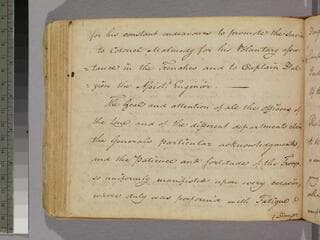 for his constant endeavours to promote the Servi
to Colonel Malmedy for his Voluntary assis
=tance in the Trenches and to Captain Dal
=zien the Assist. Enginier.
The Zeal and attention of all the officers of
the Line and of the different departments claim
the Generals particular acknowledgments
and the Patience and fortitude of the Troops
so uniformly manifested upon every occasion
where duty was perform'd with Fatigue &